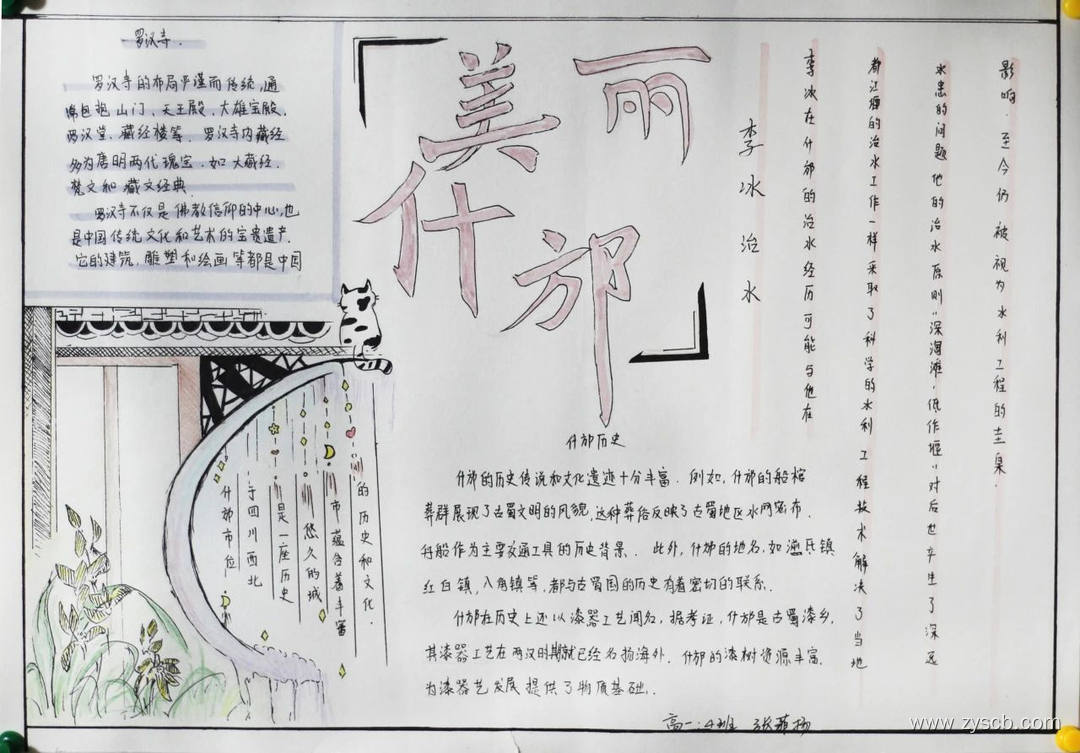 罗汉寺.
罗汉寺的布局严谨而传统,通
常包括山门、天王殿、大雄宝殿、
罗汉堂、藏经楼等. 罗汉寺内藏经
多为唐明两代瑰宝.如大藏经.
梵文和藏文经典.
罗汉寺不仅是佛教信仰的中心,也
是中国传统文化和艺术的宝贵遗产.
它的建筑,雕塑和绘画等都是中国
美丽
什邡
李冰治水
李冰在什邡的治水经历可能与他在
都江堰的治水工作一样采取了科学的水利工程技术解决了当地
水患的问题他的治水原则"深淘滩,低作堰"对后世产生了深远
影响.至今仍被视为水利工程的圭臬.
什邡市位
于四川西北
是一座历史
悠久的城
市蕴含着丰富
的历史和文化.
什邡历史
什邡的历史传说和文化遗迹十分丰富. 例如,什邡的船棺
葬群展现了古蜀文明的风貌,这种葬俗反映了古蜀地区水网密布.
将船作为主要交通工具的历史背景. 此外,什邡的地名.如 氐镇
红白镇,八角镇等,都与古蜀国的历史有着密切的联系.
什邡在历史上还以漆器工艺闻名,据考证,什邡是古蜀漆乡,
其漆器工艺在两汉时期就已经名扬海外. 什邡的漆树资源丰富,
为漆器艺发展提供了物质基础.
高一:4班
www.zyscb.com